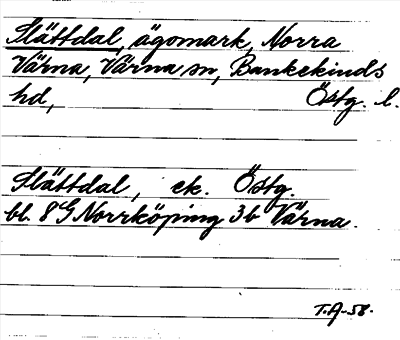 Slättdal, ägomark, Norra
Värna, Värna sn, Bankekinds
hd, Östg. l.
Slättdal, ek. Östg.
bl. 8 G Norrköping 3b Värna.
T.A-58.